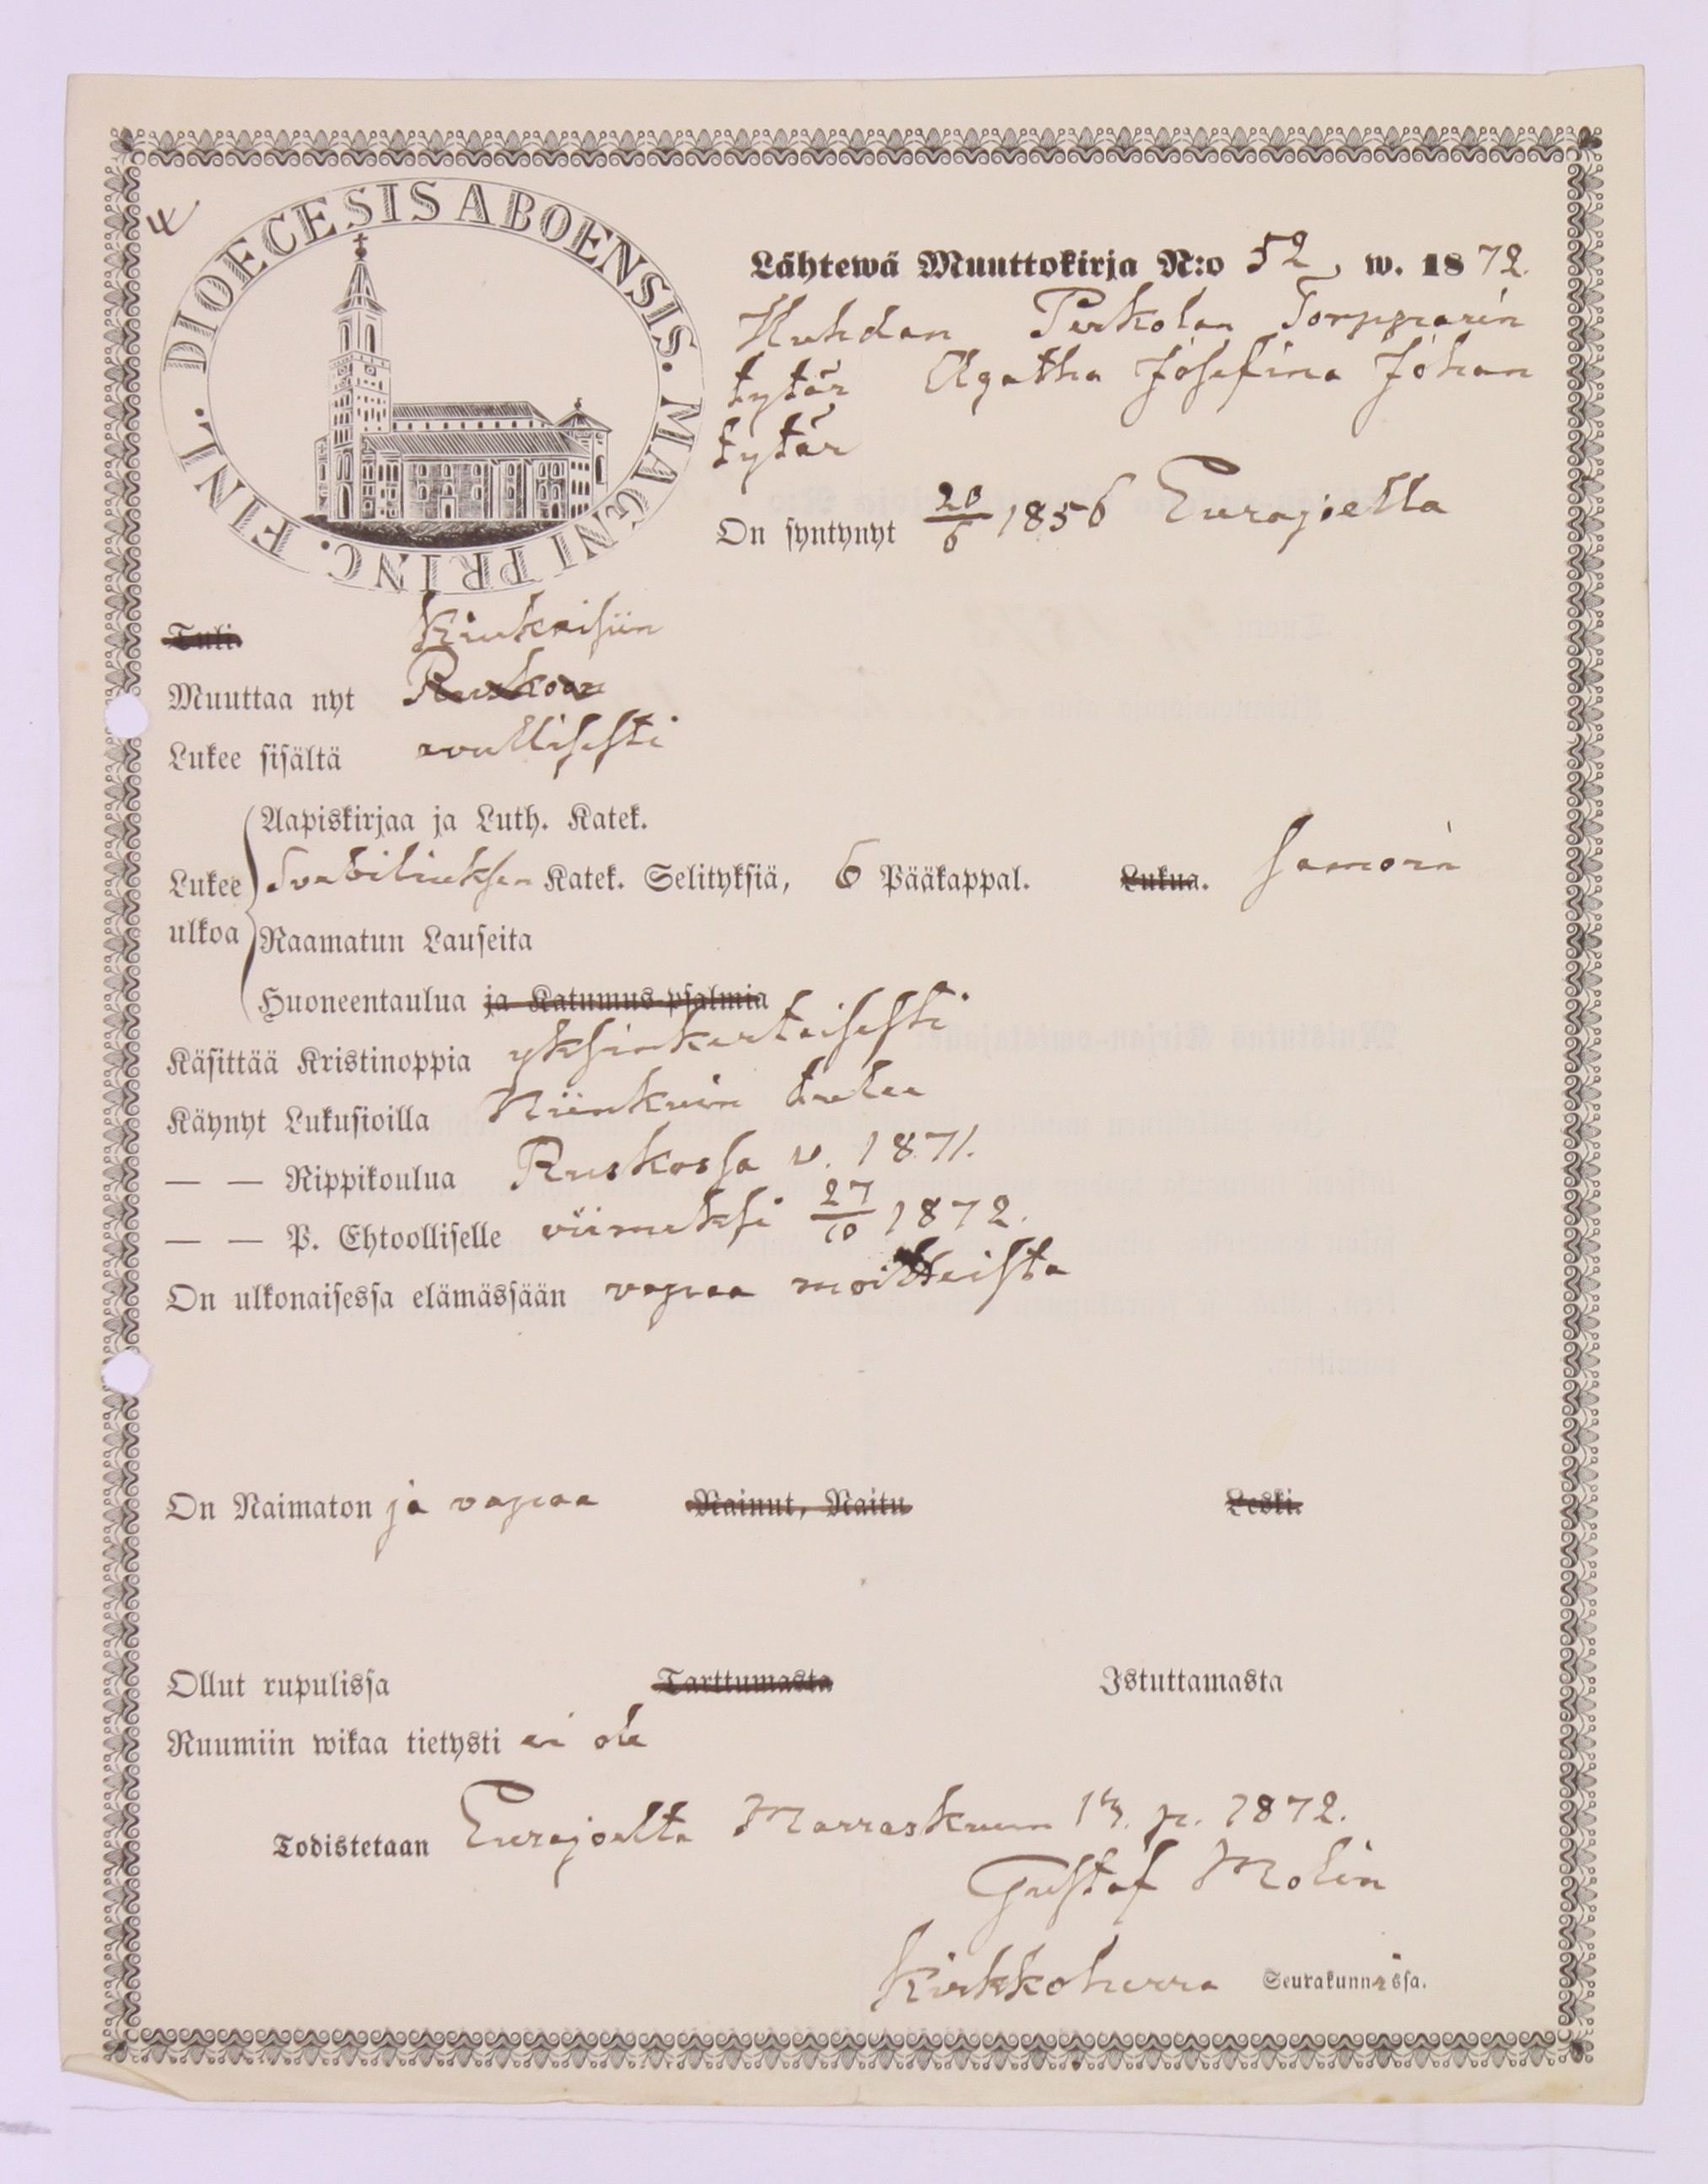 DIOECESIS ABOENSIS. MAGNI PRINC. FINL.
Lähtewä Muuttokirja N:o 52, w. 1872.
Huhdan Perkolan Torpparin
tytär Agatha Josefina Johan
tytär
On syntynyt 20/6 1856 Eurajoella
Tuli
Kiukaisiin
Muuttaa nyt Ruskoon
Lukee sisältä avullisesti
Aapiskirjaa ja Luth. Katek.
Lukee ulkoa Svebiliuksen Katek. Selityksiä, 6 Pääkappal. Lukua. samoin
Raamatun Lauseita
Huoneentaulua ja Katumus-psalmia
Käsittää Kristinoppia yksinkertaisesti
Käynyt Lukusioilla Niinkuin tulee
— — Rippikoulua Ruskossa v. 1871.
— — P. Ehtoolliselle viimeksi 27/10 1872.
On ulkonaisessa elämässään vapaa moitteista
On Naimaton ja vapaa Nainut, Naitu Leski.
Ollut rupulissa Tarttumasta Istuttamasta
Ruumiin wikaa tietysti ei ole
Todistetaan Eurajoelta Marraskuun p. 1872.
Gustaf Molin
Kirkkoherra Seurakunnassa.